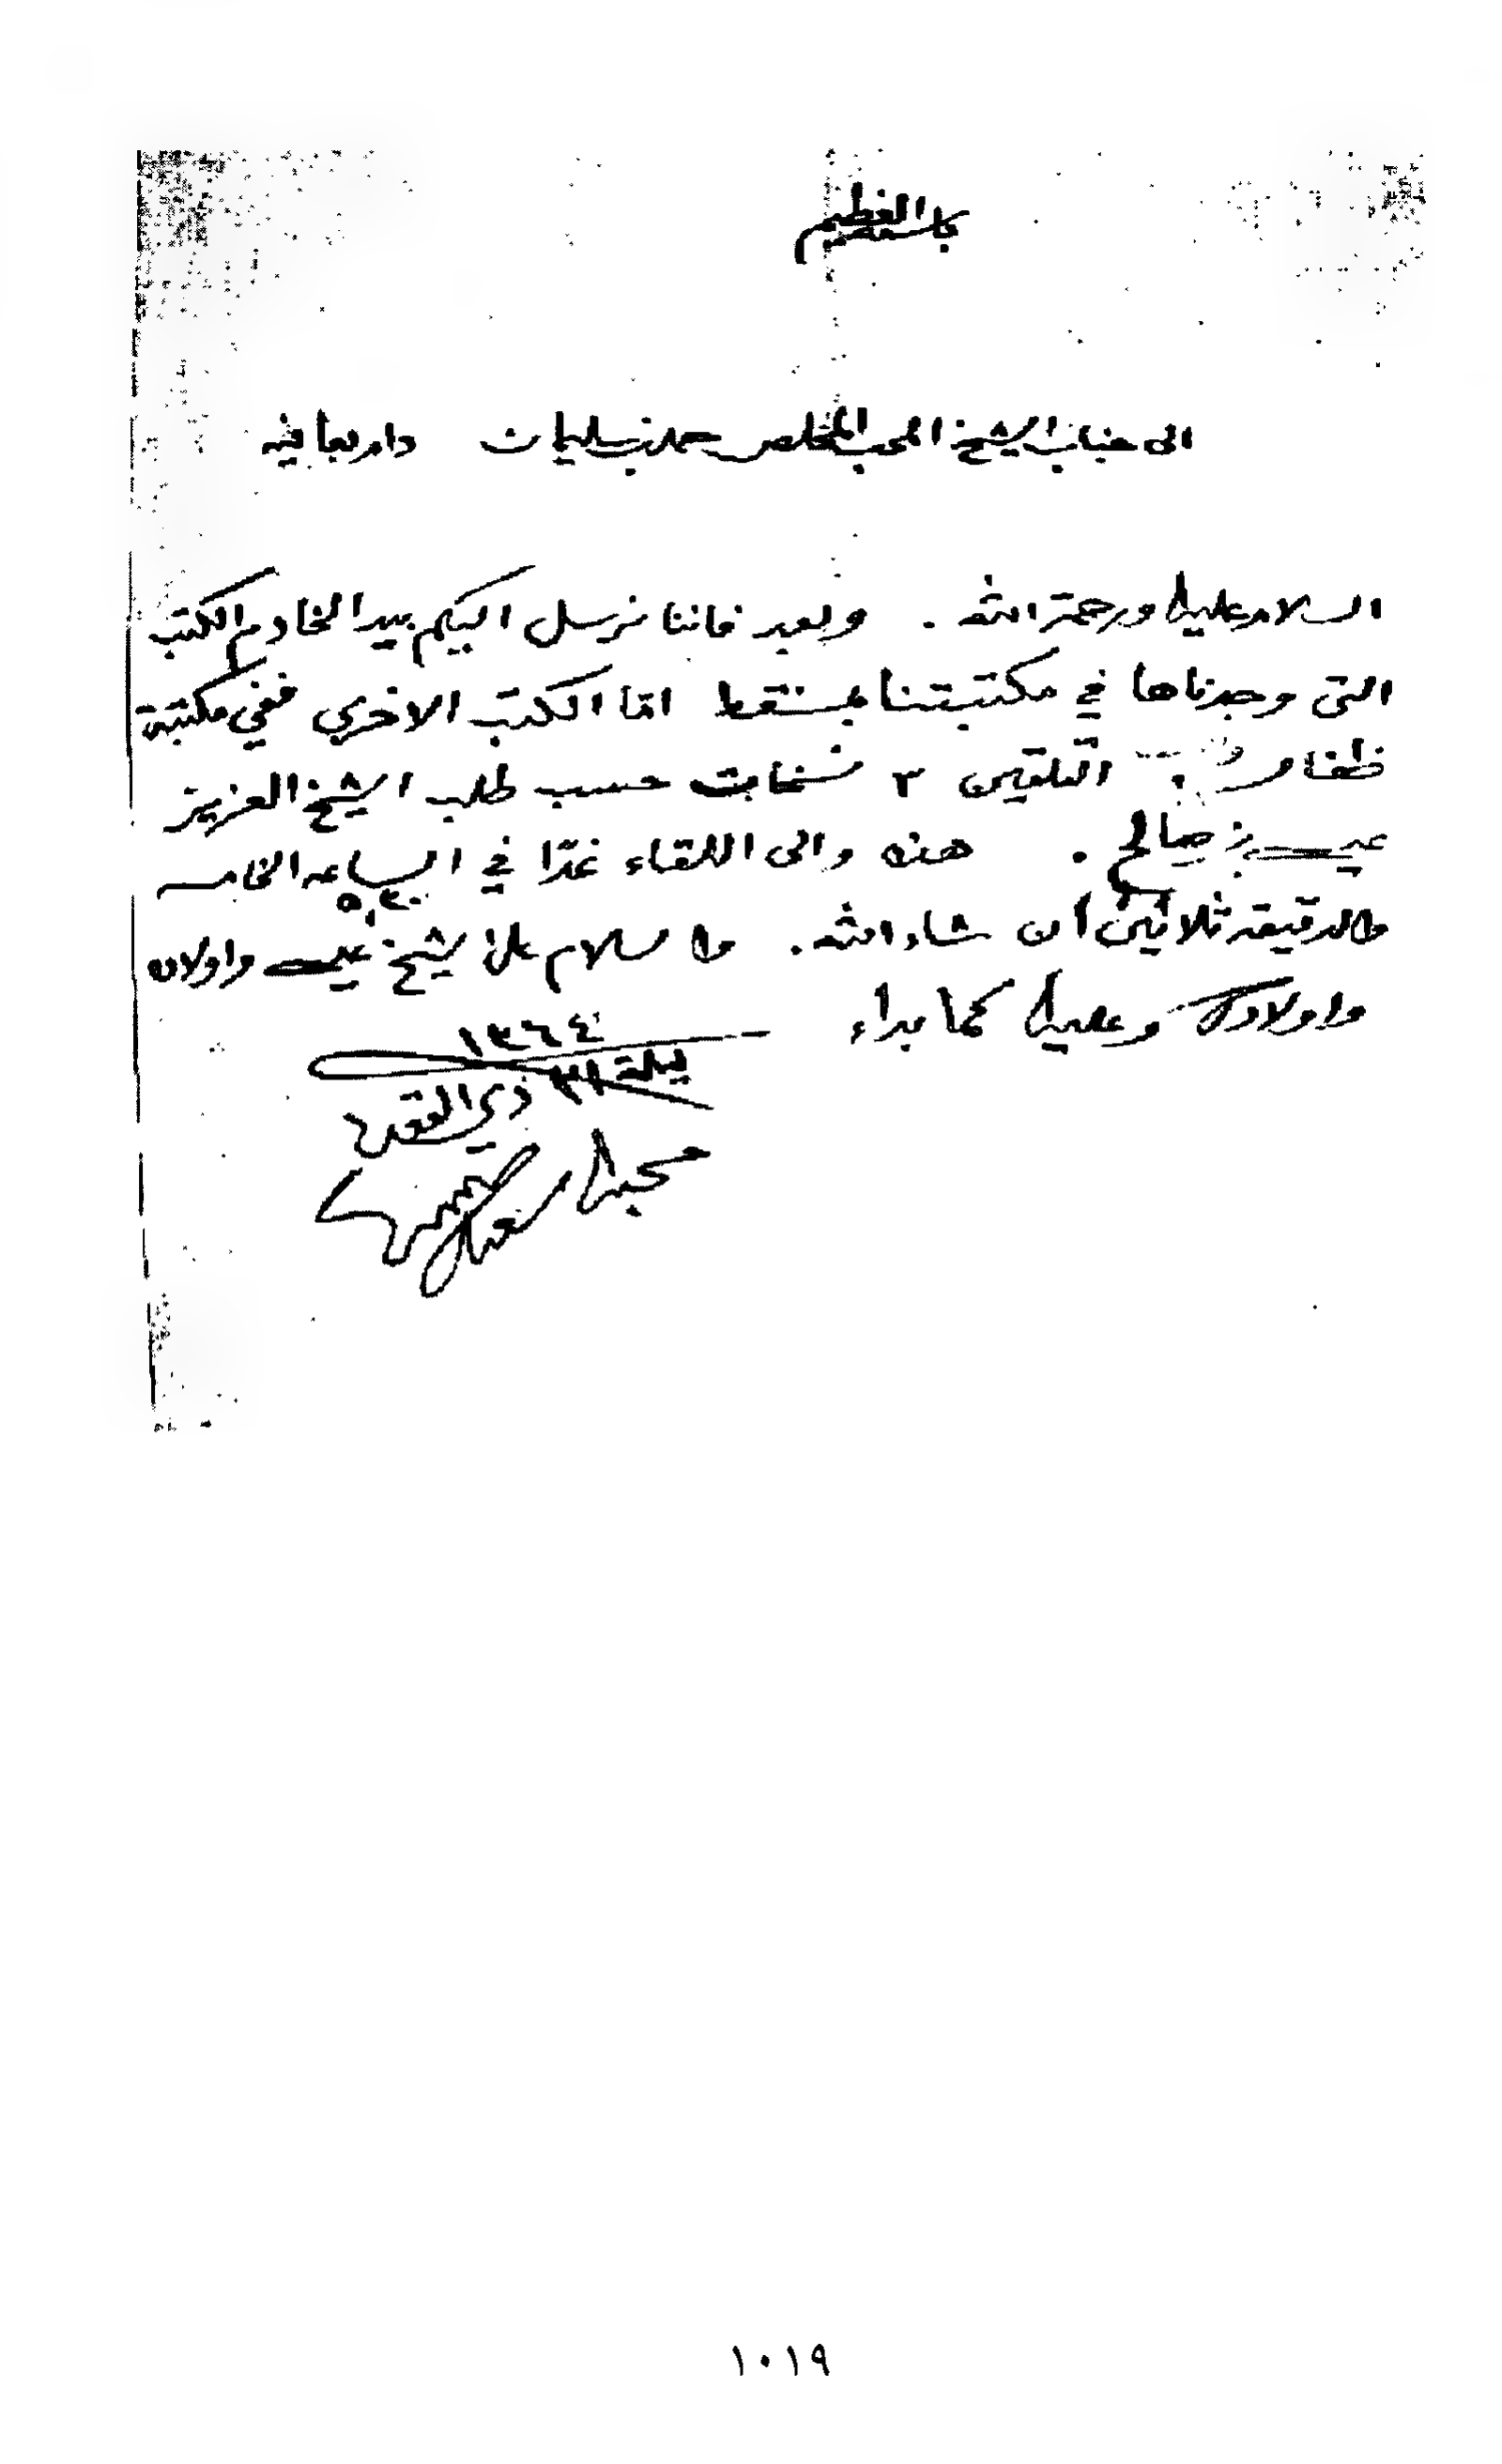 باسمه العظيم
الى جناب الشيخ المحب المخلص حمد بن سليمان دام بعافيه
السلام عليك ورحمة الله . وبعد فاننا نرسل اليكم بيد الخادم الكتب
التى وجدناها في مكتبتنا بمسقط امّا الكتب الاخرى ففي مكتبة
ظفار التلقين ٣ نسخات حسب طلب الشيخ العزيز
عيسى بن صالح . هذه والى اللقاء غدًا في الساعه الخامسه
٥,٣٠
والدقيقه ثلاثين ان شاء الله . والسلام على الشيخ عيسى واولاده
واولادك وعليك كما بداء
١٣٦٤
ليلة ٢١ ذي القعده
محبك سعيد
١٠١٩